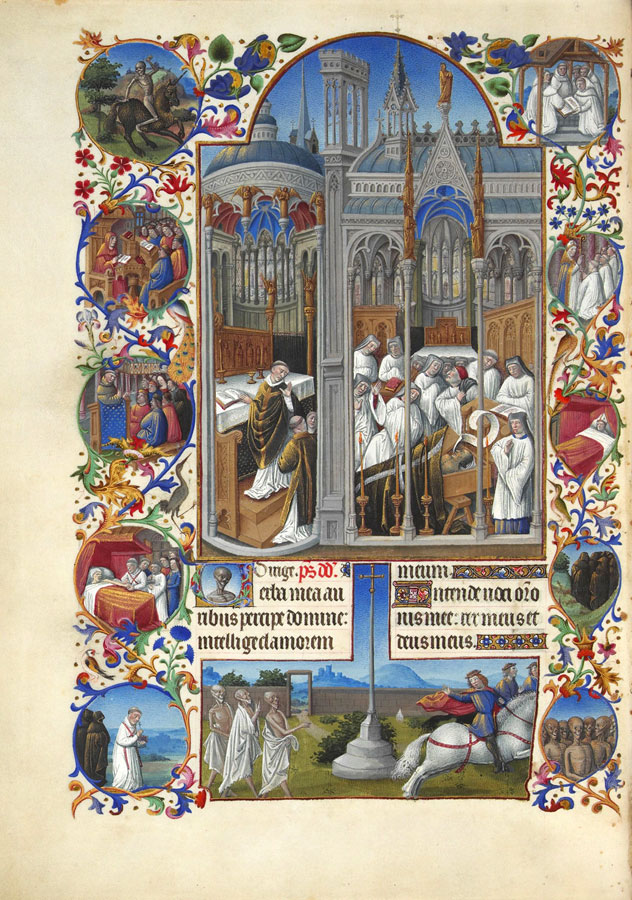 Dirige. ps dd.
Verba mea au
ribus percipe domine:
intellige clamorem
meum.
Intende uoci orõ
nis mee: rex meus et
deus meus.